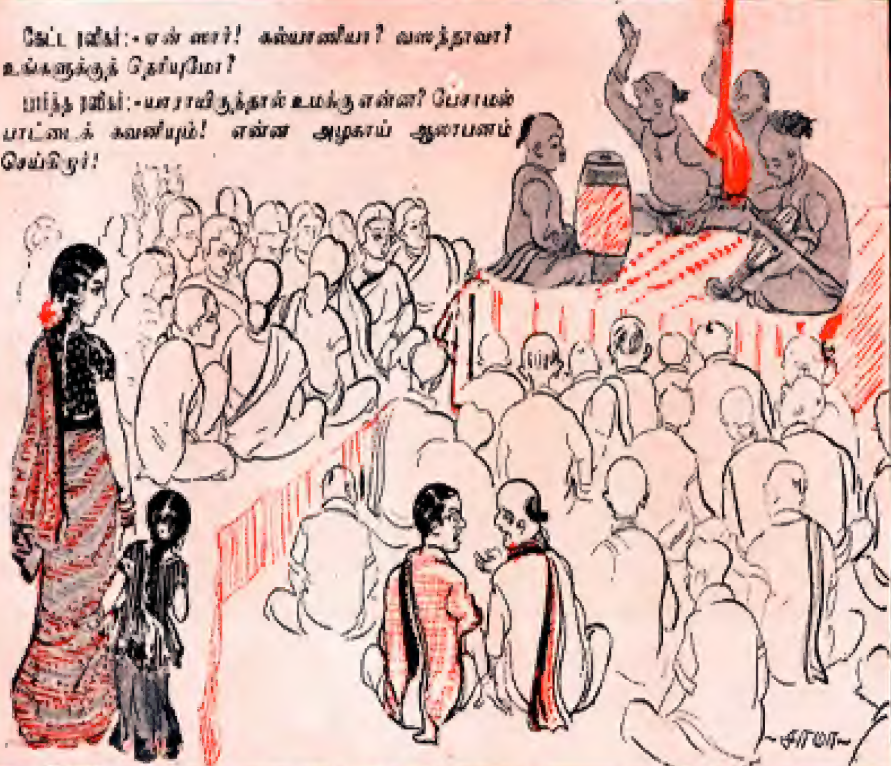 கேட்ட ரஸிகர்:- ஏன் ஸார்! கல்யாணியா? வஸந்தாவா?
உங்களுக்குத் தெரியுமோ?
பார்த்த ரஸிகர்:- யாராயிருந்தால் உமக்கு என்ன? பேசாமல்
பாட்டைக் கவனியும்! என்ன அழகாய் ஆலாபனம்
செய்கிறார்!
~சாமா~